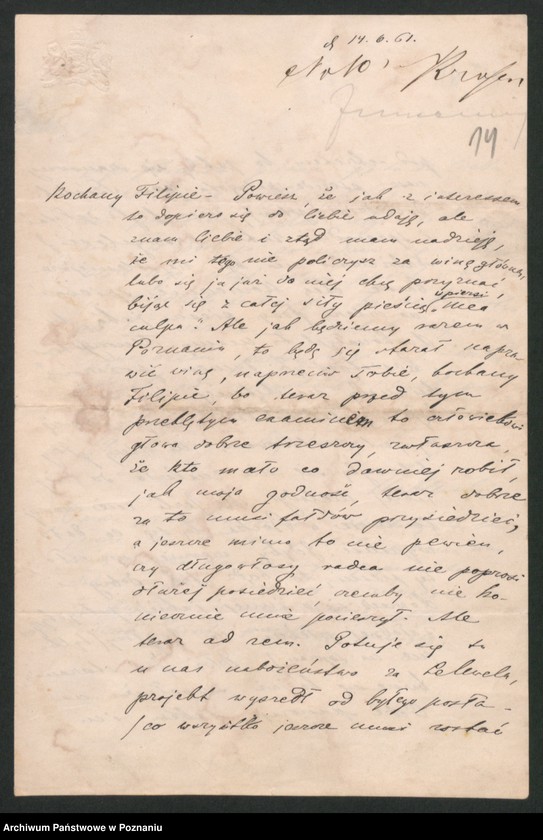 d 14.6.61.
No 10
14
Kochany Filipie – Powiesz, że jak z interessem
to dopiero się do Ciebie udaję, ale
znam Ciebie i ztąd mam nadzieję,
że mi tego nie policzysz za winę główną,
lubo się ja już do niej chcę przyznać,
bijąc się z całej siły pięścią w piersi „Mea
culpa". Ale jak będziemy razem w
Poznaniu, to będę się starał napra-
wić winę, naprzeciw Tobie, kochany
Filipie, bo teraz przed tym
przeklętym examinem to człowiekowi
głowa dobrze trzeszczy, zwłaszcza,
że kto mało co dawniej robił,
jak moja godność, teraz dobrze
za to musi fałdów przysiedzieć,
a jeszcze mimo to nie pewien,
czy długowłosy radca nie poprosi
dłużej posiedzieć, czemby nie ko-
niecznie mnie pocieszył. Ale
teraz ad rem. Gotuje się tu
u nas nabożeństwo za Lelewela,
projekt wyszedł od byłego posła –
/co wszystko jeszcze musi zostać
Archiwum Państwowe w Poznaniu